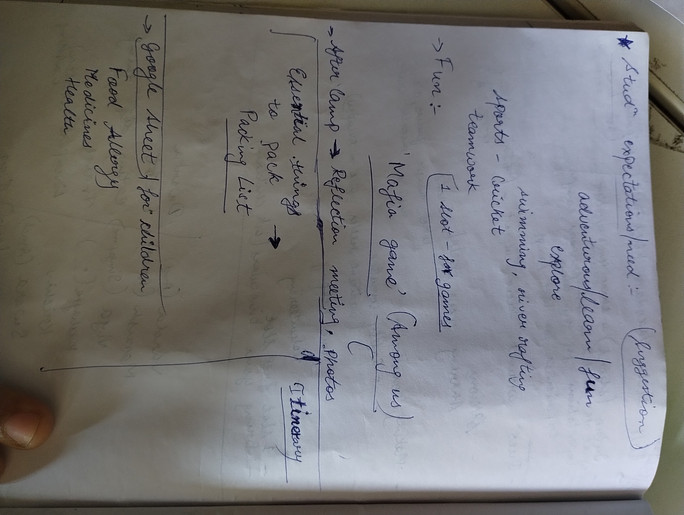 * Studⁿ expectations/need :- (Suggestion)
adventurous/learn/fun
explore
swimming, river rafting
sports - cricket
teamwork
→ Fun :- (1 slot - for games
'Mafia game' (Among us)
→ After Camp → Reflection meeting, photos
Essential things →
to pack
Packing List
Itinerary
→ Google Sheet / for children
Food Allergy
Medicines
Health